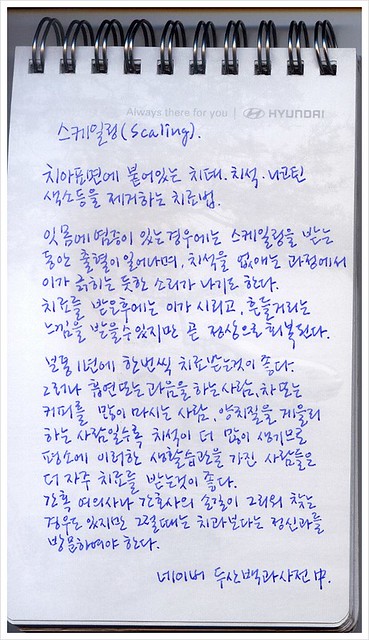 Always there for you | HYUNDAI
스케일링(Scaling).
치아표면에 붙어있는 치태.치석.니코틴
색소등을 제거하는 치료법.
잇몸에 염증이 있는경우에는 스케일링을 받는
동안 출혈이 일어나며, 치석을 없애는 과정에서
이가 긁히는 듯한 소리가 나기도 한다.
치료를 받은후에는 이가 시리고, 흔들거리는
느낌을 받을수있지만 곧 정상으로 회복된다.
보통 1년에 한번씩 치료받는것이 좋다.
그러나 흡연또는과음을 하는사람, 차또는
커피를 많이 마시는 사람, 양치질을 게을리
하는 사람일수록 치석이 더 많이 생기므로
평소에 이러한 생활습관을 가진 사람들은
더 자주 치료를 받는것이 좋다.
간혹 여의사나 간호사의 손길이 그리워 찾는
경우도 있지만 그럴때는 치과보다는 정신과를
방문하여야 한다.
네이버 두산백과사전 中.